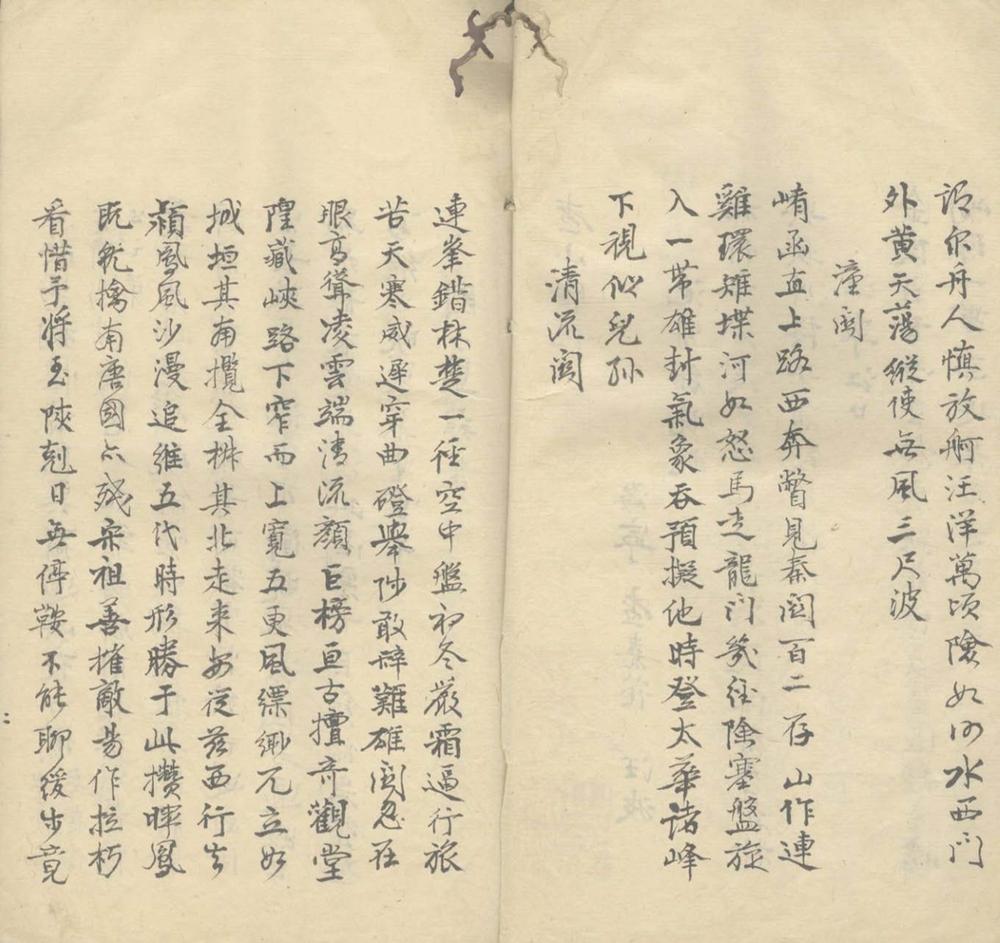 語尔舟人慎放舸汪洋萬頃險如何水西门
外黄天蕩縱使無風三尺波
潼関
崤函直上路西奔瞥見秦関百二存山作連
雞環雉堞河如怒馬走龍门幾径险塞盤旋
入一带雄封氣象吞預擬他時登太華诸峰
下視似兒孙
清流関
連峯錯林楚一径空中盤初冬嚴霜逼行旅
苦天寒威遲穿曲磴舉陟敢辞難雄関忽在
眼高聳凌雲端清流顏巨榜亘古擅奇觀堂
隍藏峡路下窄而上寬五更風縹缈兀立如
城垣其南攬全椒其北走来安從兹西行去
潁鳳風沙漫追維五代時形勝于此攒暉鳳
既就擒南唐國亦残宋祖善摧敵易作拉朽
看惜予将至陝剋日無停鞍不能聊缓步竟